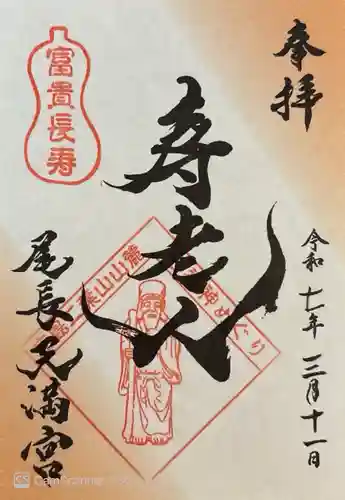 奉拝
令和七年三月十一日
寿老人
富貴長寿
二葉山山麓
めぐり
尾長天満宮
CamScanner